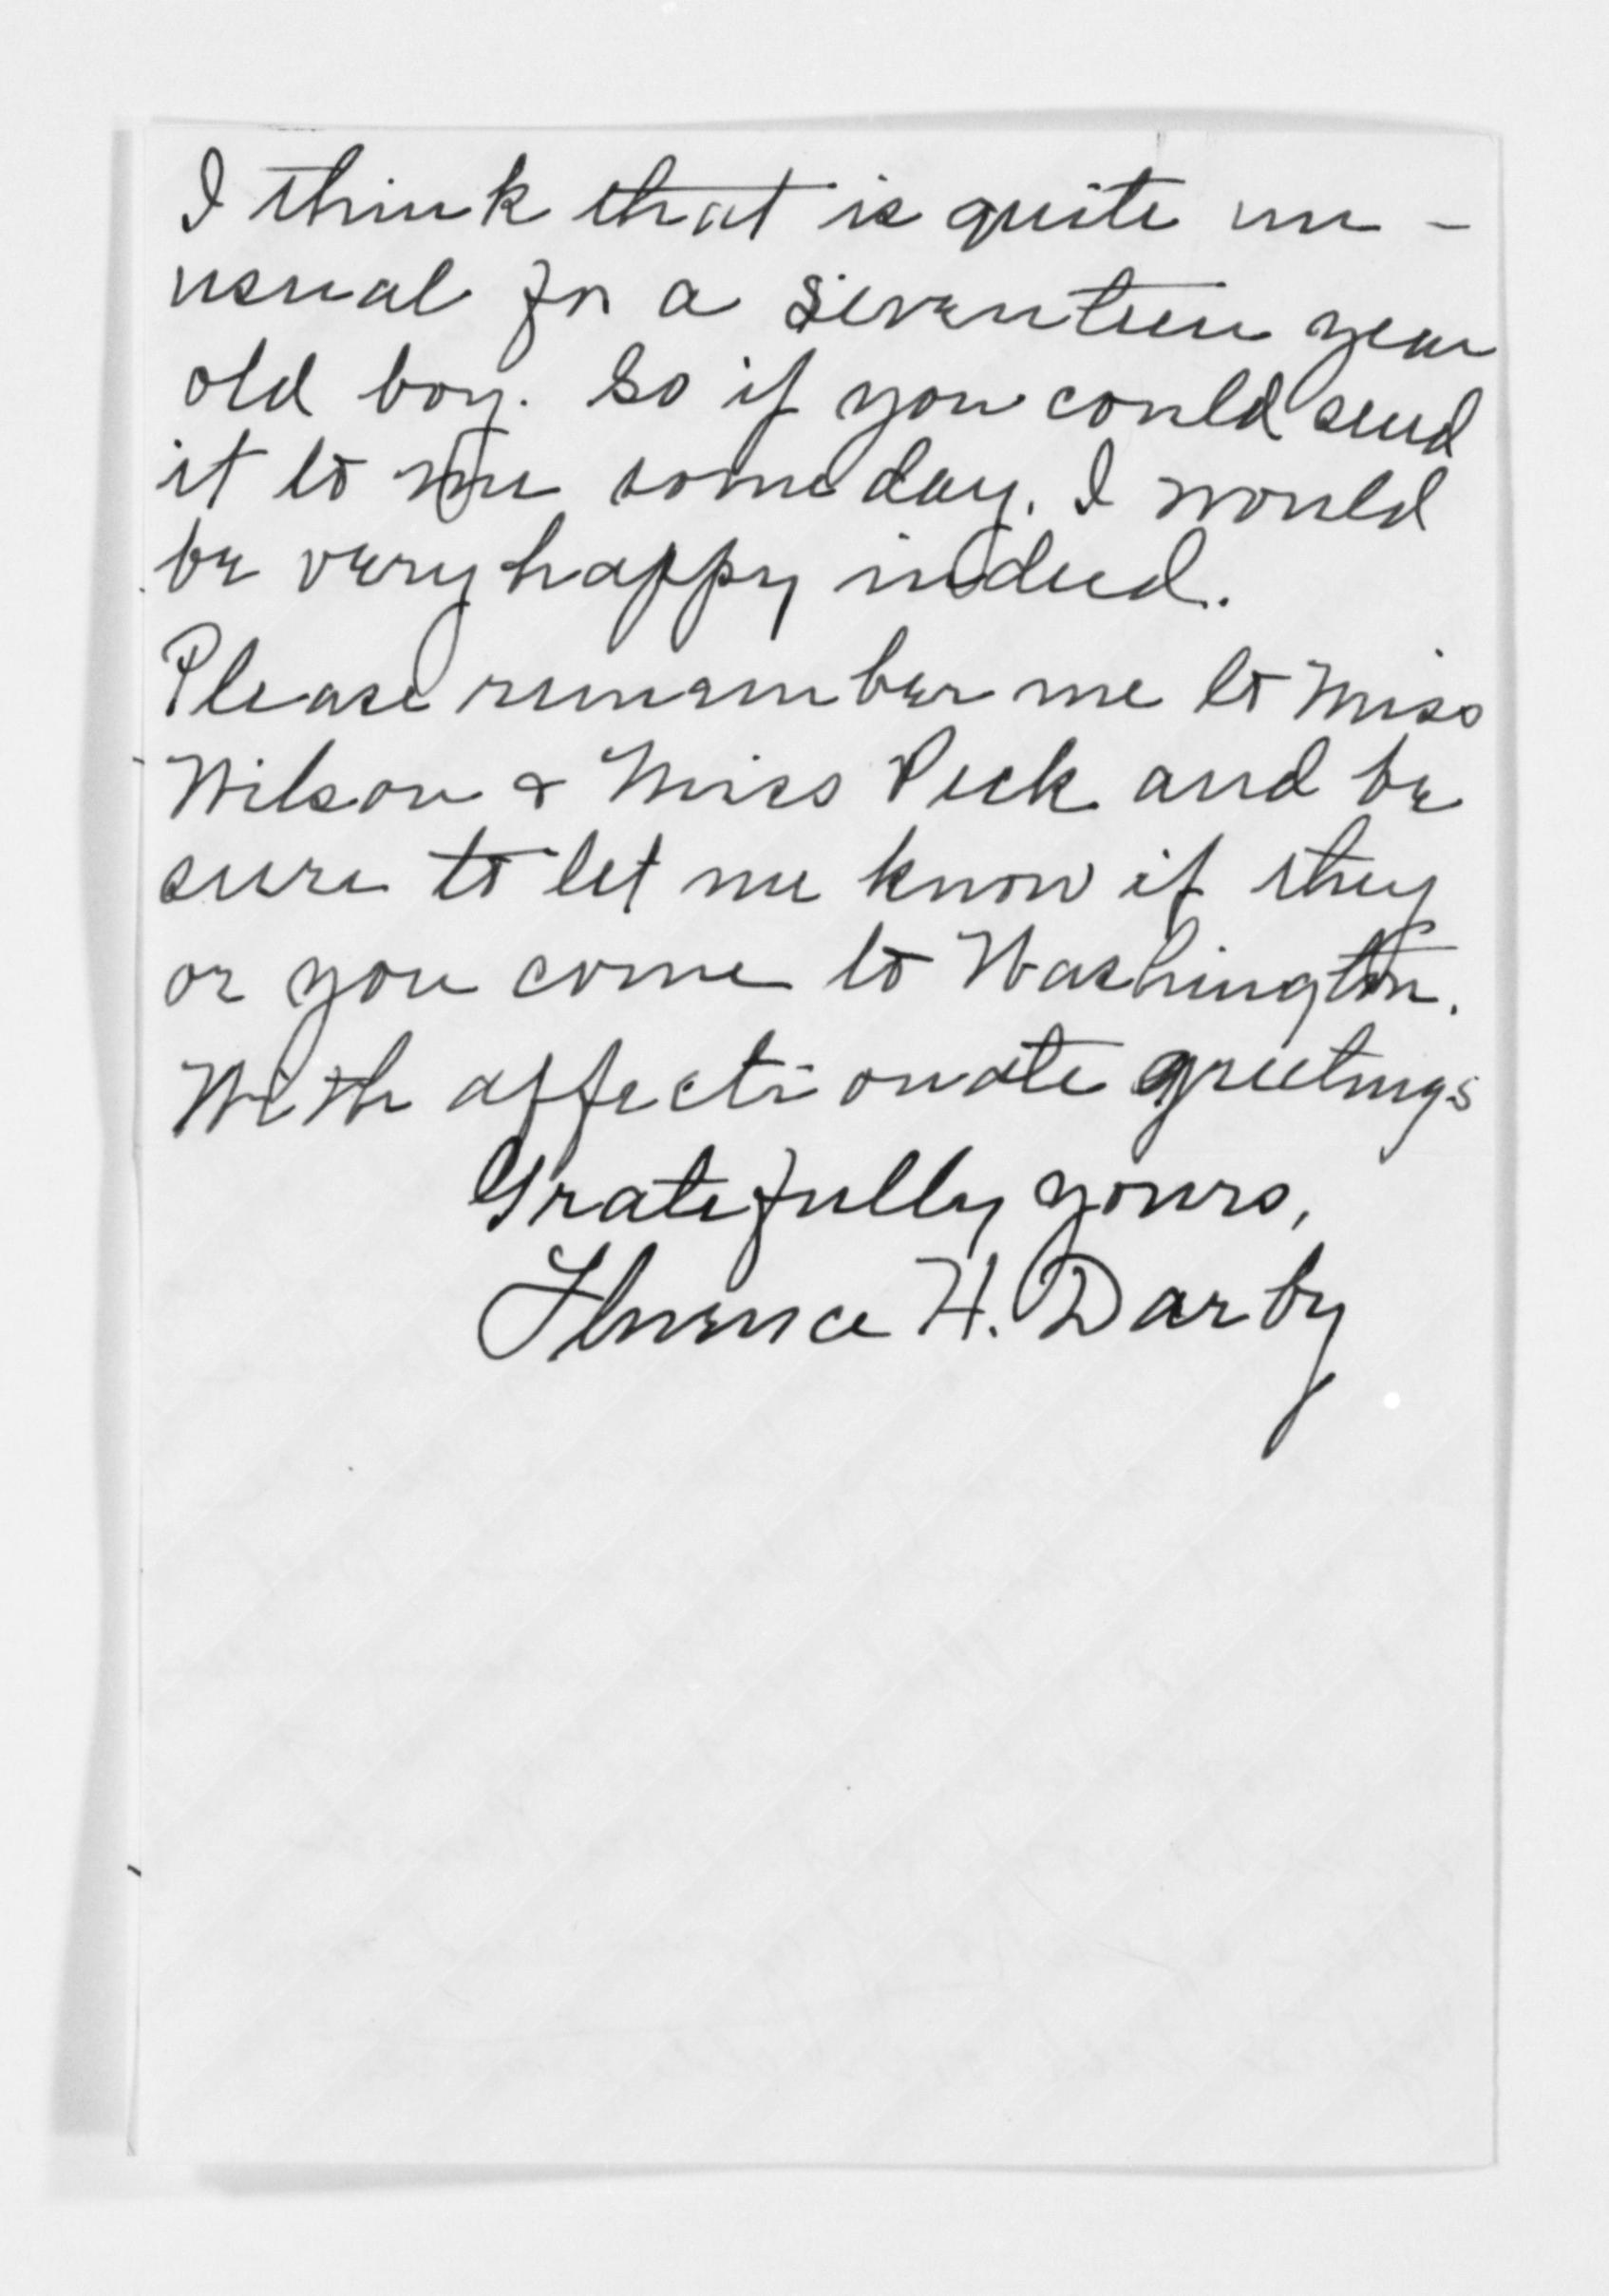 I think that is quite un-
usual for a seventeen year
old boy. So if you could send
it to me some day. I would
be very happy indeed.
Please remember me to Miss
Wilson & Miss Peck and be
sure to let me know if they
or you come to Washington.
With affectionate greetings
Gratefully yours,
Florence H. Darby